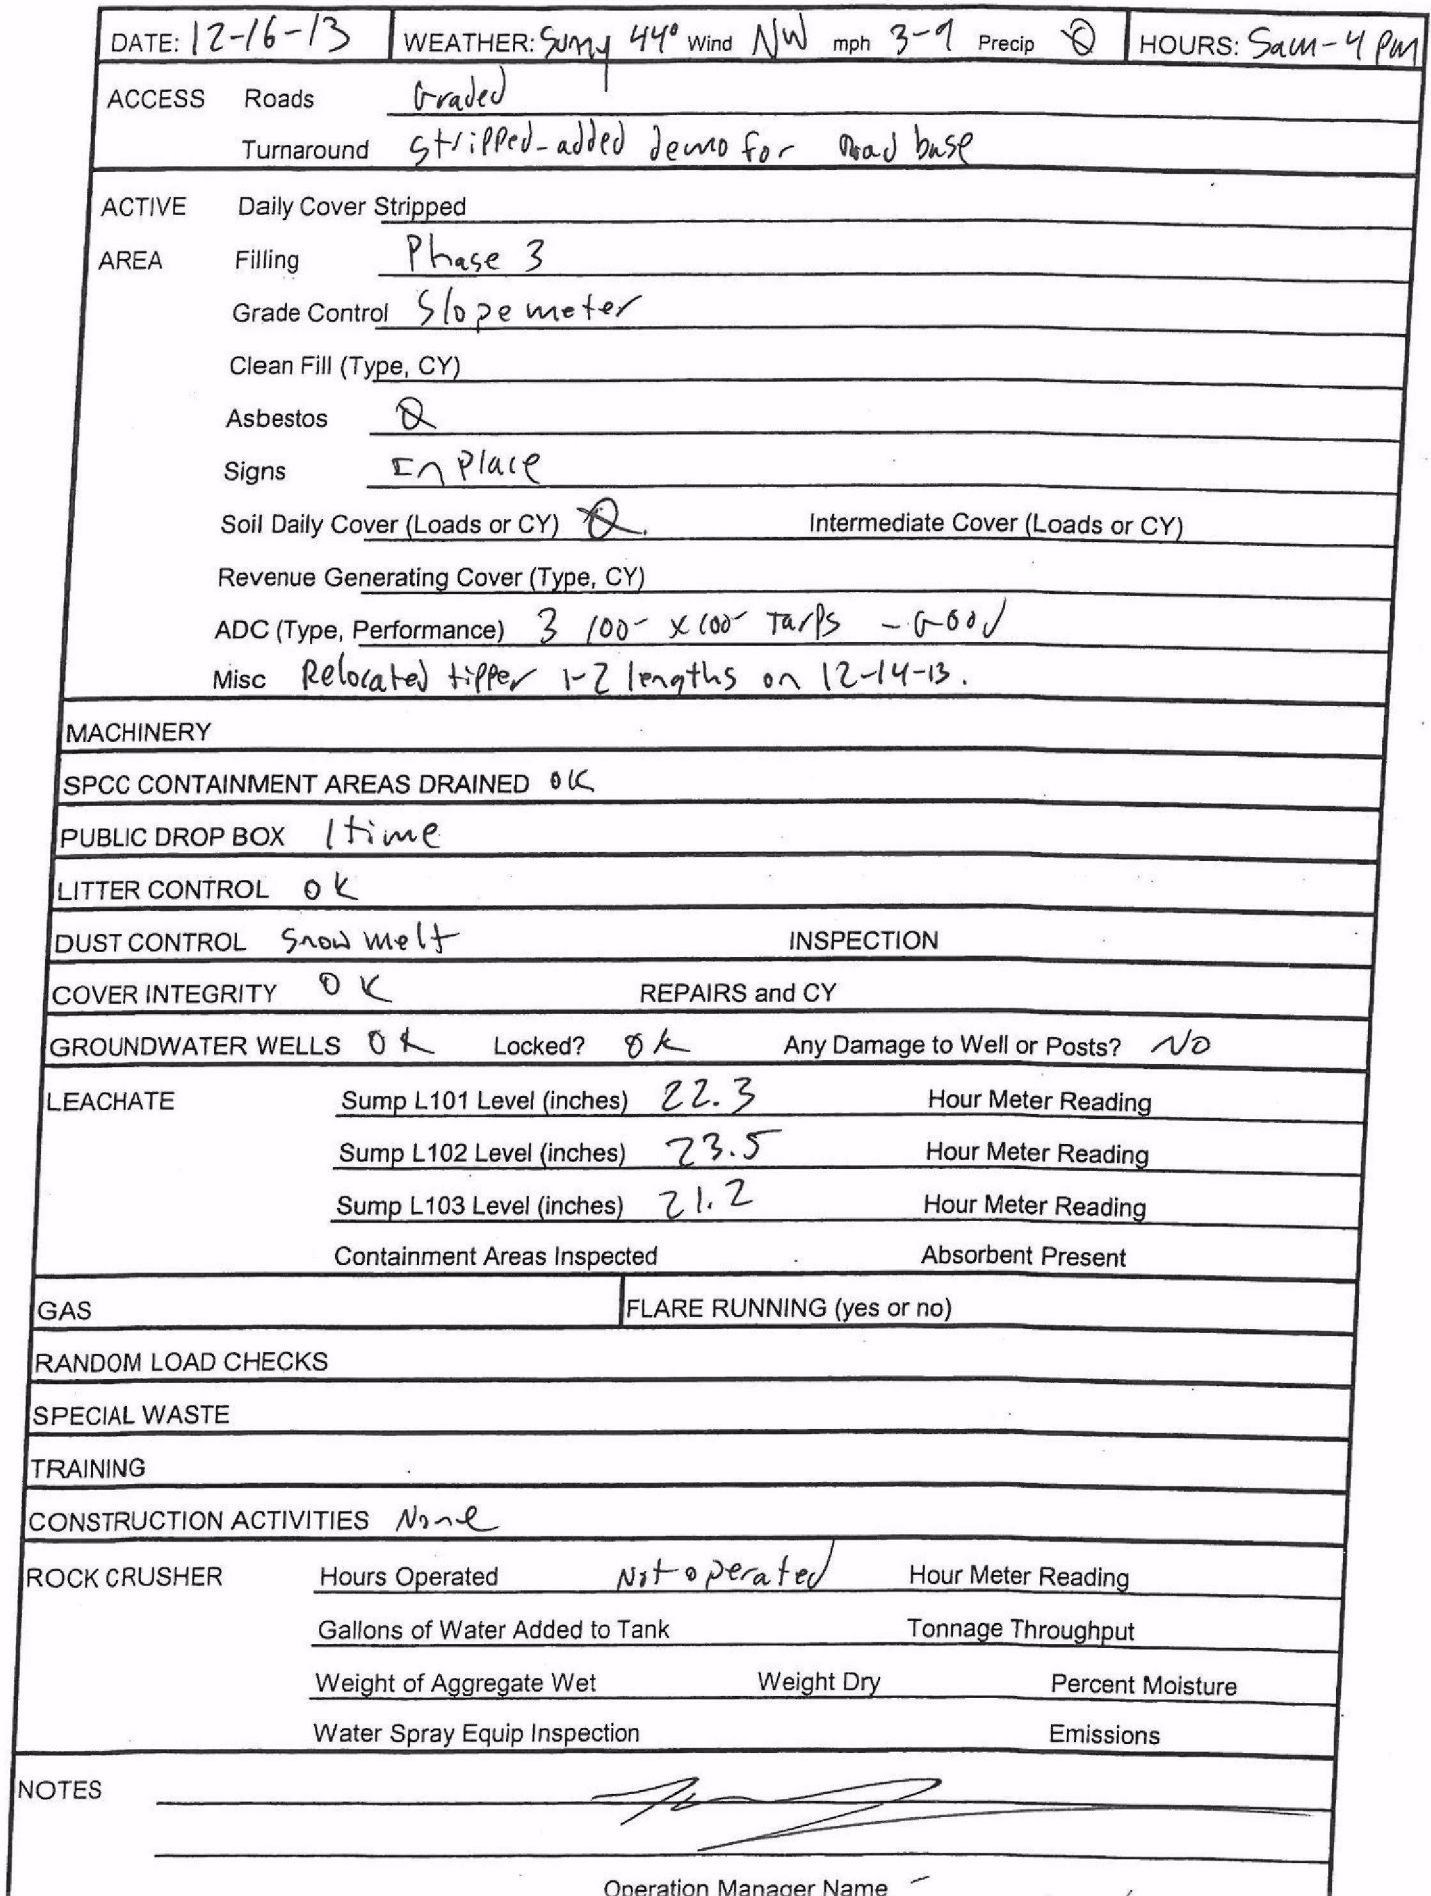 DATE: 12-16-13 WEATHER: Sunny 44° Wind NW mph 3-9 Precip Ø HOURS: 5am-4pm
ACCESS Roads Graded
Turnaround Stripped-added demo for road base
ACTIVE Daily Cover Stripped
AREA Filling Phase 3
Grade Control Slope meter
Clean Fill (Type, CY)
Asbestos Ø
Signs In Place
Soil Daily Cover (Loads or CY) Ø. Intermediate Cover (Loads or CY)
Revenue Generating Cover (Type, CY)
ADC (Type, Performance) 3 100' x 100' Tarps - Good
Misc Relocated tipper 1-2 lengths on 12-14-13.
MACHINERY
SPCC CONTAINMENT AREAS DRAINED OK
PUBLIC DROP BOX 1 time
LITTER CONTROL OK
DUST CONTROL Snow melt INSPECTION
COVER INTEGRITY OK REPAIRS and CY
GROUNDWATER WELLS OK Locked? OK Any Damage to Well or Posts? NO
LEACHATE Sump L101 Level (inches) 22.3 Hour Meter Reading
Sump L102 Level (inches) 23.5 Hour Meter Reading
Sump L103 Level (inches) 21.2 Hour Meter Reading
Containment Areas Inspected Absorbent Present
GAS FLARE RUNNING (yes or no)
RANDOM LOAD CHECKS
SPECIAL WASTE
TRAINING
CONSTRUCTION ACTIVITIES None
ROCK CRUSHER Hours Operated Not operated Hour Meter Reading
Gallons of Water Added to Tank Tonnage Throughput
Weight of Aggregate Wet Weight Dry Percent Moisture
Water Spray Equip Inspection Emissions
NOTES
Operation Manager Name